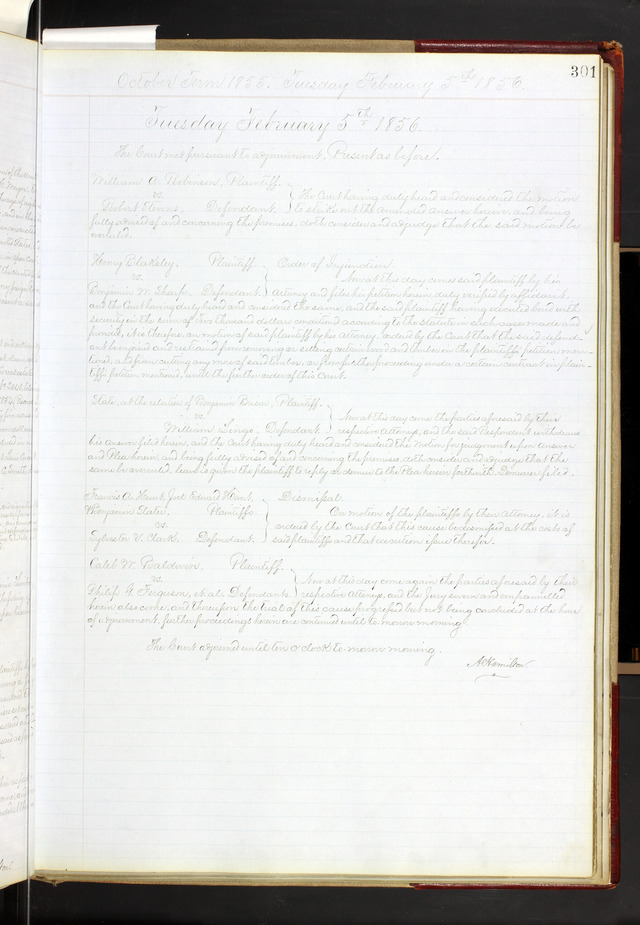 301
October Term 1855. Tuesday February 5th 1856.
Tuesday February 5th 1856.
The Court met pursuant to adjournment, Present as before.
William A. Robinson, Plaintiff.
vs.
Robert Defendant.
The Court having duly heard and considered the motion
to strike out the amended answer herein, and being
fully advised of and concerning the premises, doth consider and adjudge that the said motion be
overruled.
Henry Blakeley, Plaintiff
vs.
Benjamin W. Sharp, Defendant.
Order of Injunction.
Now at this day comes said plaintiff by his
Attorney and files his petition herein, duly verified by affidavit,
and the Court having duly heard and considered the same, and the said plaintiff having executed bond with
security in the sum of thousand dollars conditioned according to the Statute in such cases made and
provided, it is therefore on motion of said plaintiff by his Attorney ordered by the Court that the said defend-
ant be enjoined and restrained from selling cutting wood and timber on the plaintiffs petition men-
tioned, also from cutting any more of said timber, or from further proceeding under a certain contract in plain-
tiffs petition mentioned, until the further order of this Court.
State, at the relation of Benjamin Plaintiff.
vs.
William Defendant.
Now at this day come the parties aforesaid by their
respective Attorneys, and the said Respondent withdraws
his answer filed herein, and the Court having duly heard and considered the Motion for judgment upon Answer
and Plea herein and being fully advised of and concerning the premises doth consider and adjudge that the
same be overruled, leave is given the plaintiff to reply or demur to the Plea herein forthwith. Demurrer filed.
Francis A. Hunt, Edward Hunt,
Benjamin Slater, Plaintiffs
vs.
Sylvester V. Clark, Defendant.
Dismissal.
On motion of the plaintiffs by their Attorney, it is
ordered by the Court that this cause be dismissed at the costs of
said plaintiffs and that execution issue therefor.
Caleb W. Baldwin, Plaintiff
vs.
Philip G. Ferguson, et al. Defendants.
Now at this day come again the parties aforesaid by their
respective Attorneys, and the Jury sworn and empannelled
herein also come, and thereupon the trial of this cause progressed but not being concluded at the hour
of adjournment, further proceedings herein are continued until to-morrow morning.
The Court adjourned until ten o'clock to-morrow morning.
A. Hamilton